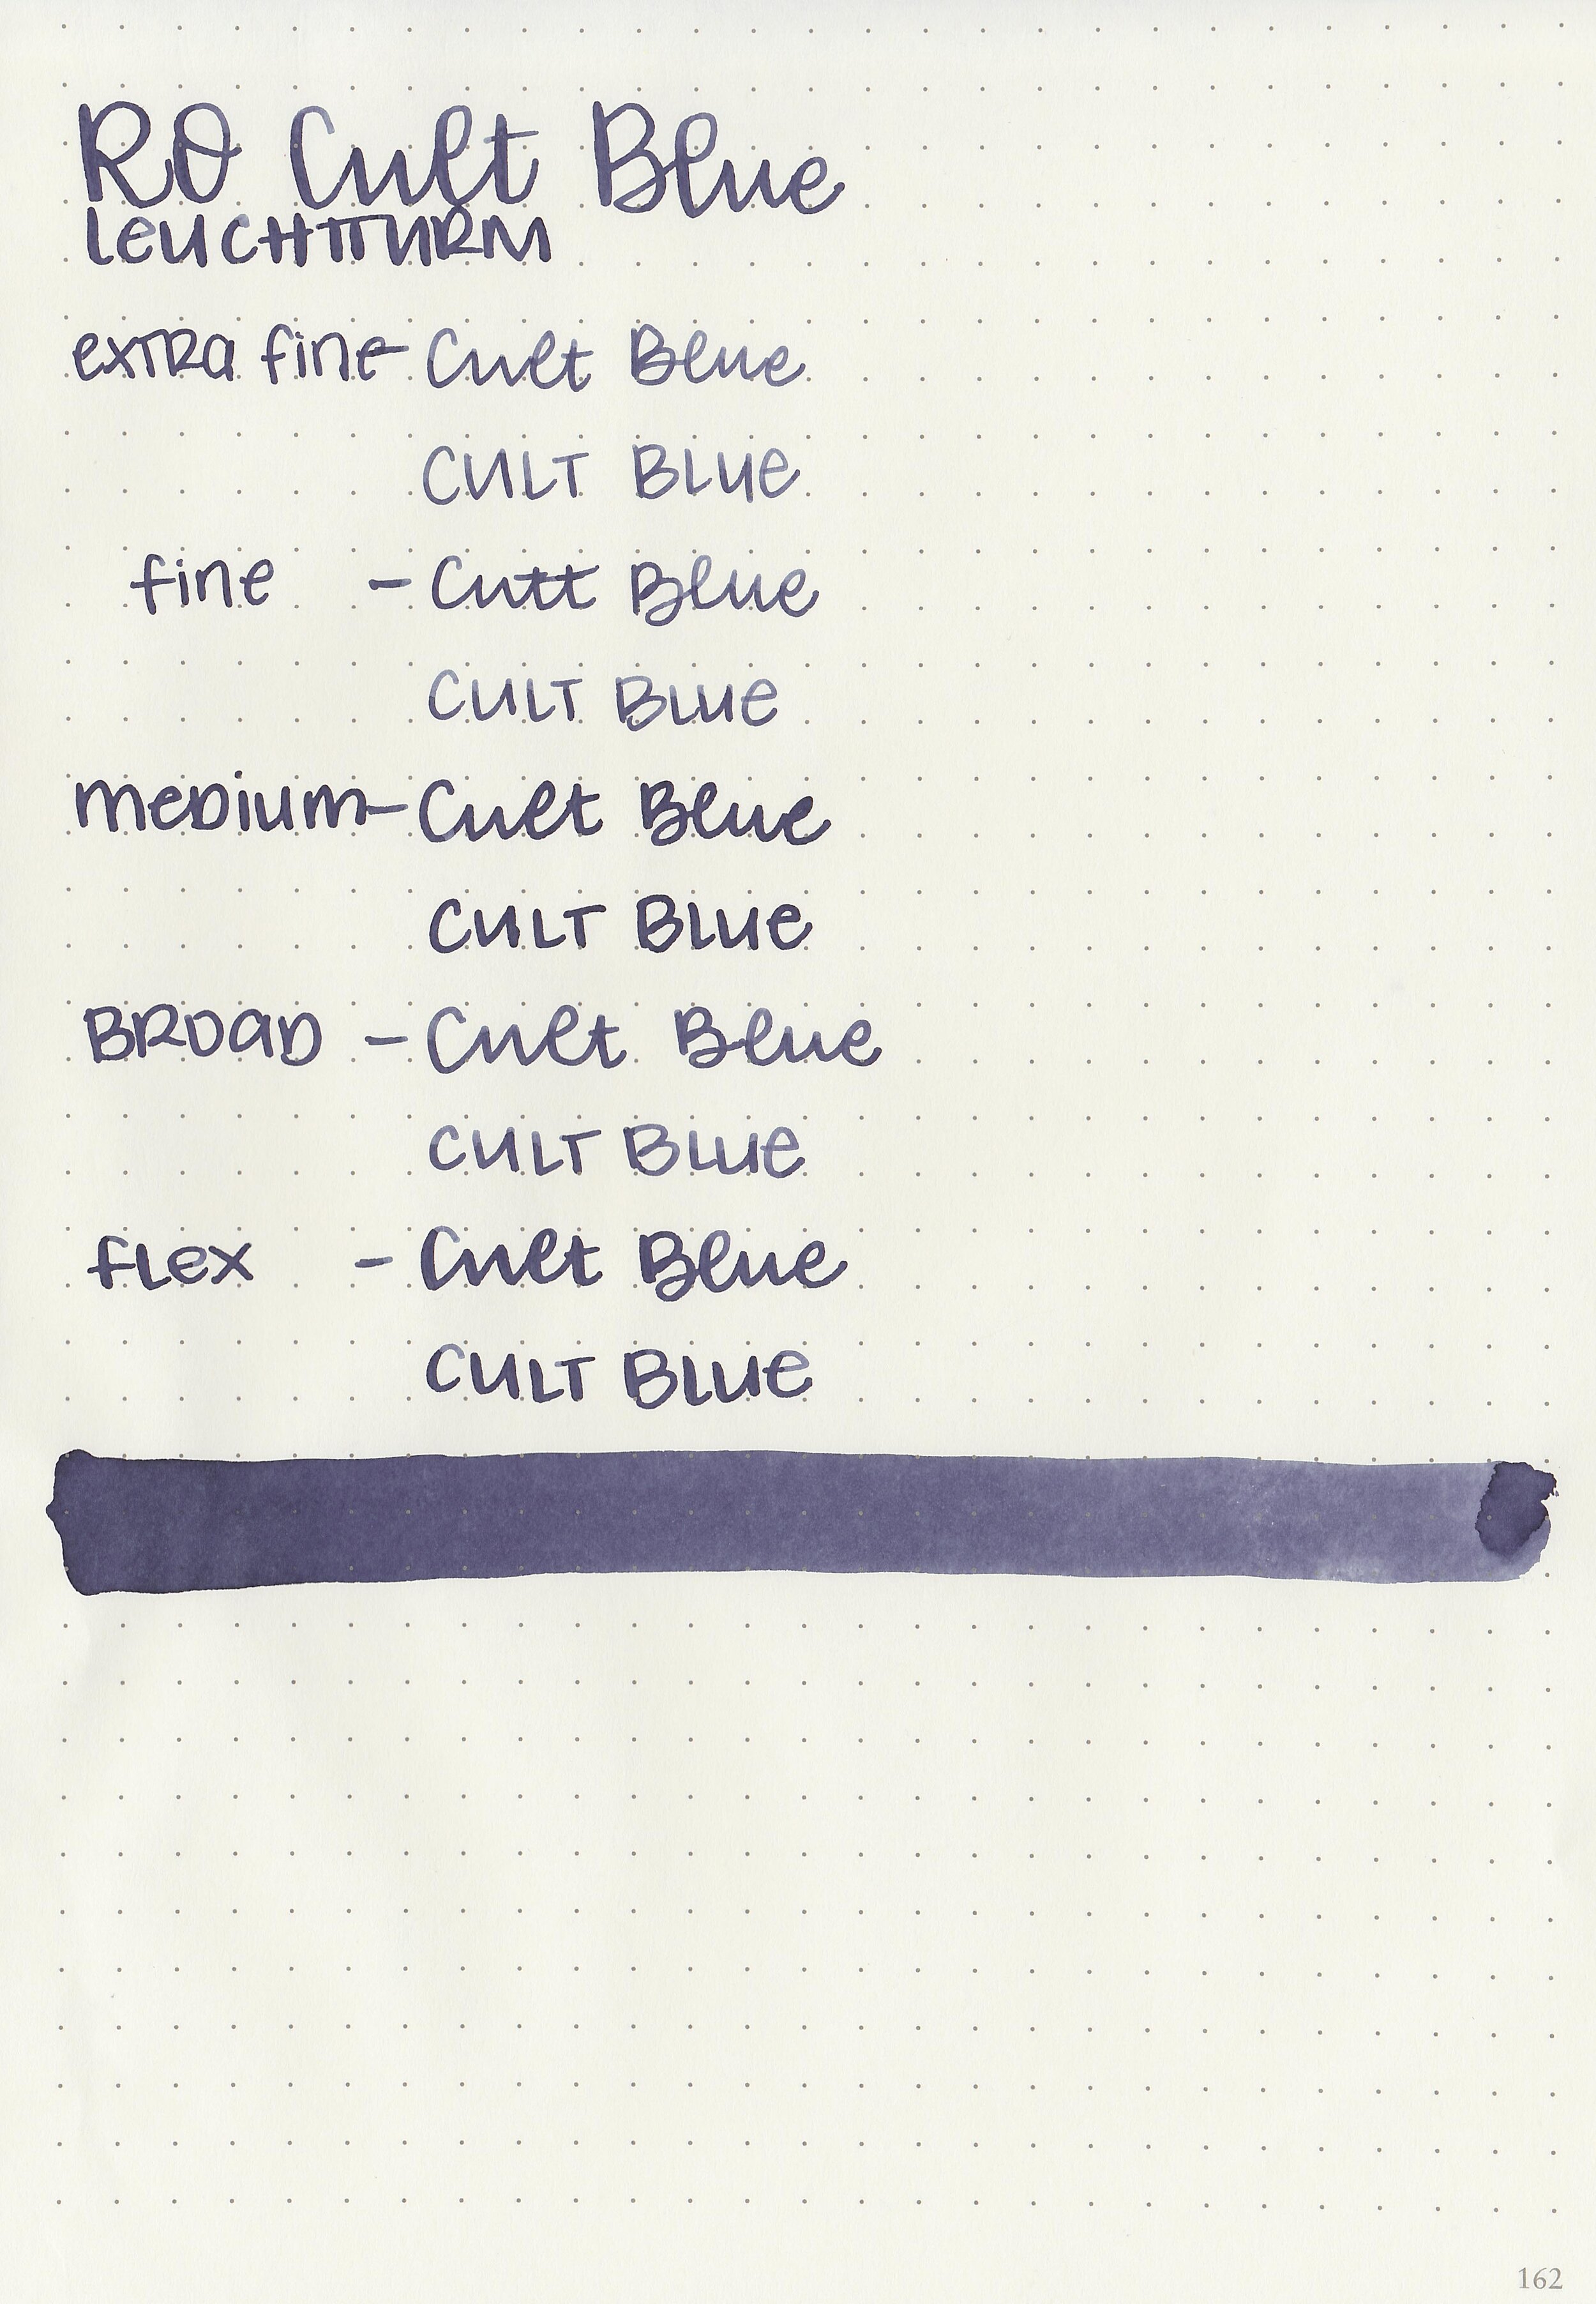 RO Cult Blue
LEUCHTTURM
extra fine - Cult Blue
CULT BLUE
fine - Cutt Blue
CULT BLUE
MEDIUM - Cult Blue
CULT BLUE
BROAD - Cult Blue
CULT BLUE
FLEX - Cult Blue
CULT BLUE
162